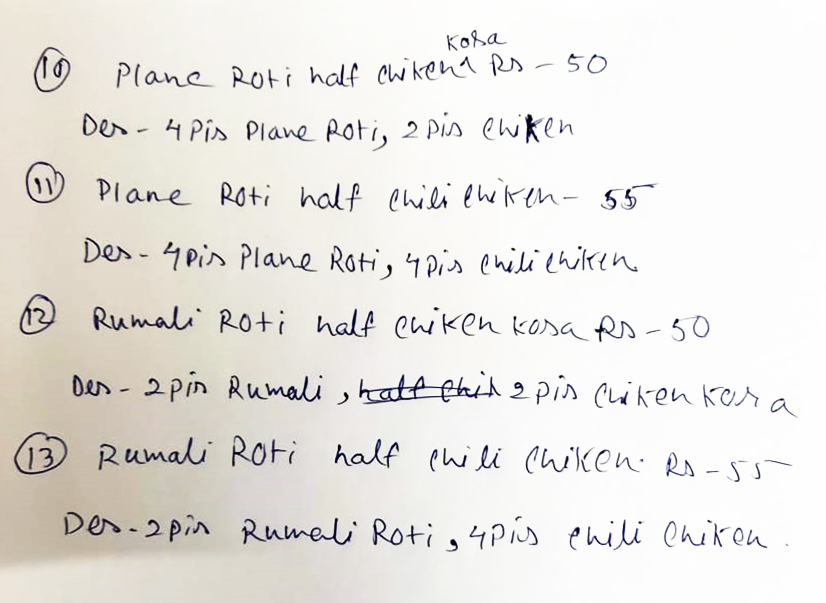 10 Plane Roti half chiken kosa Rs - 50
Des - 4 Pis Plane Roti, 2 Pis Chiken
11 Plane Roti half chili chiken - 55
Des - 4 pis Plane Roti, 4 pis chili chiken
12 Rumali Roti half chiken kosa Rs - 50
Des - 2 pis Rumali, half chik 2 pis chiken kosa
13 Rumali Roti half chili chiken. Rs - 55
Des - 2 pis Rumali Roti, 4 Pis chili chiken.